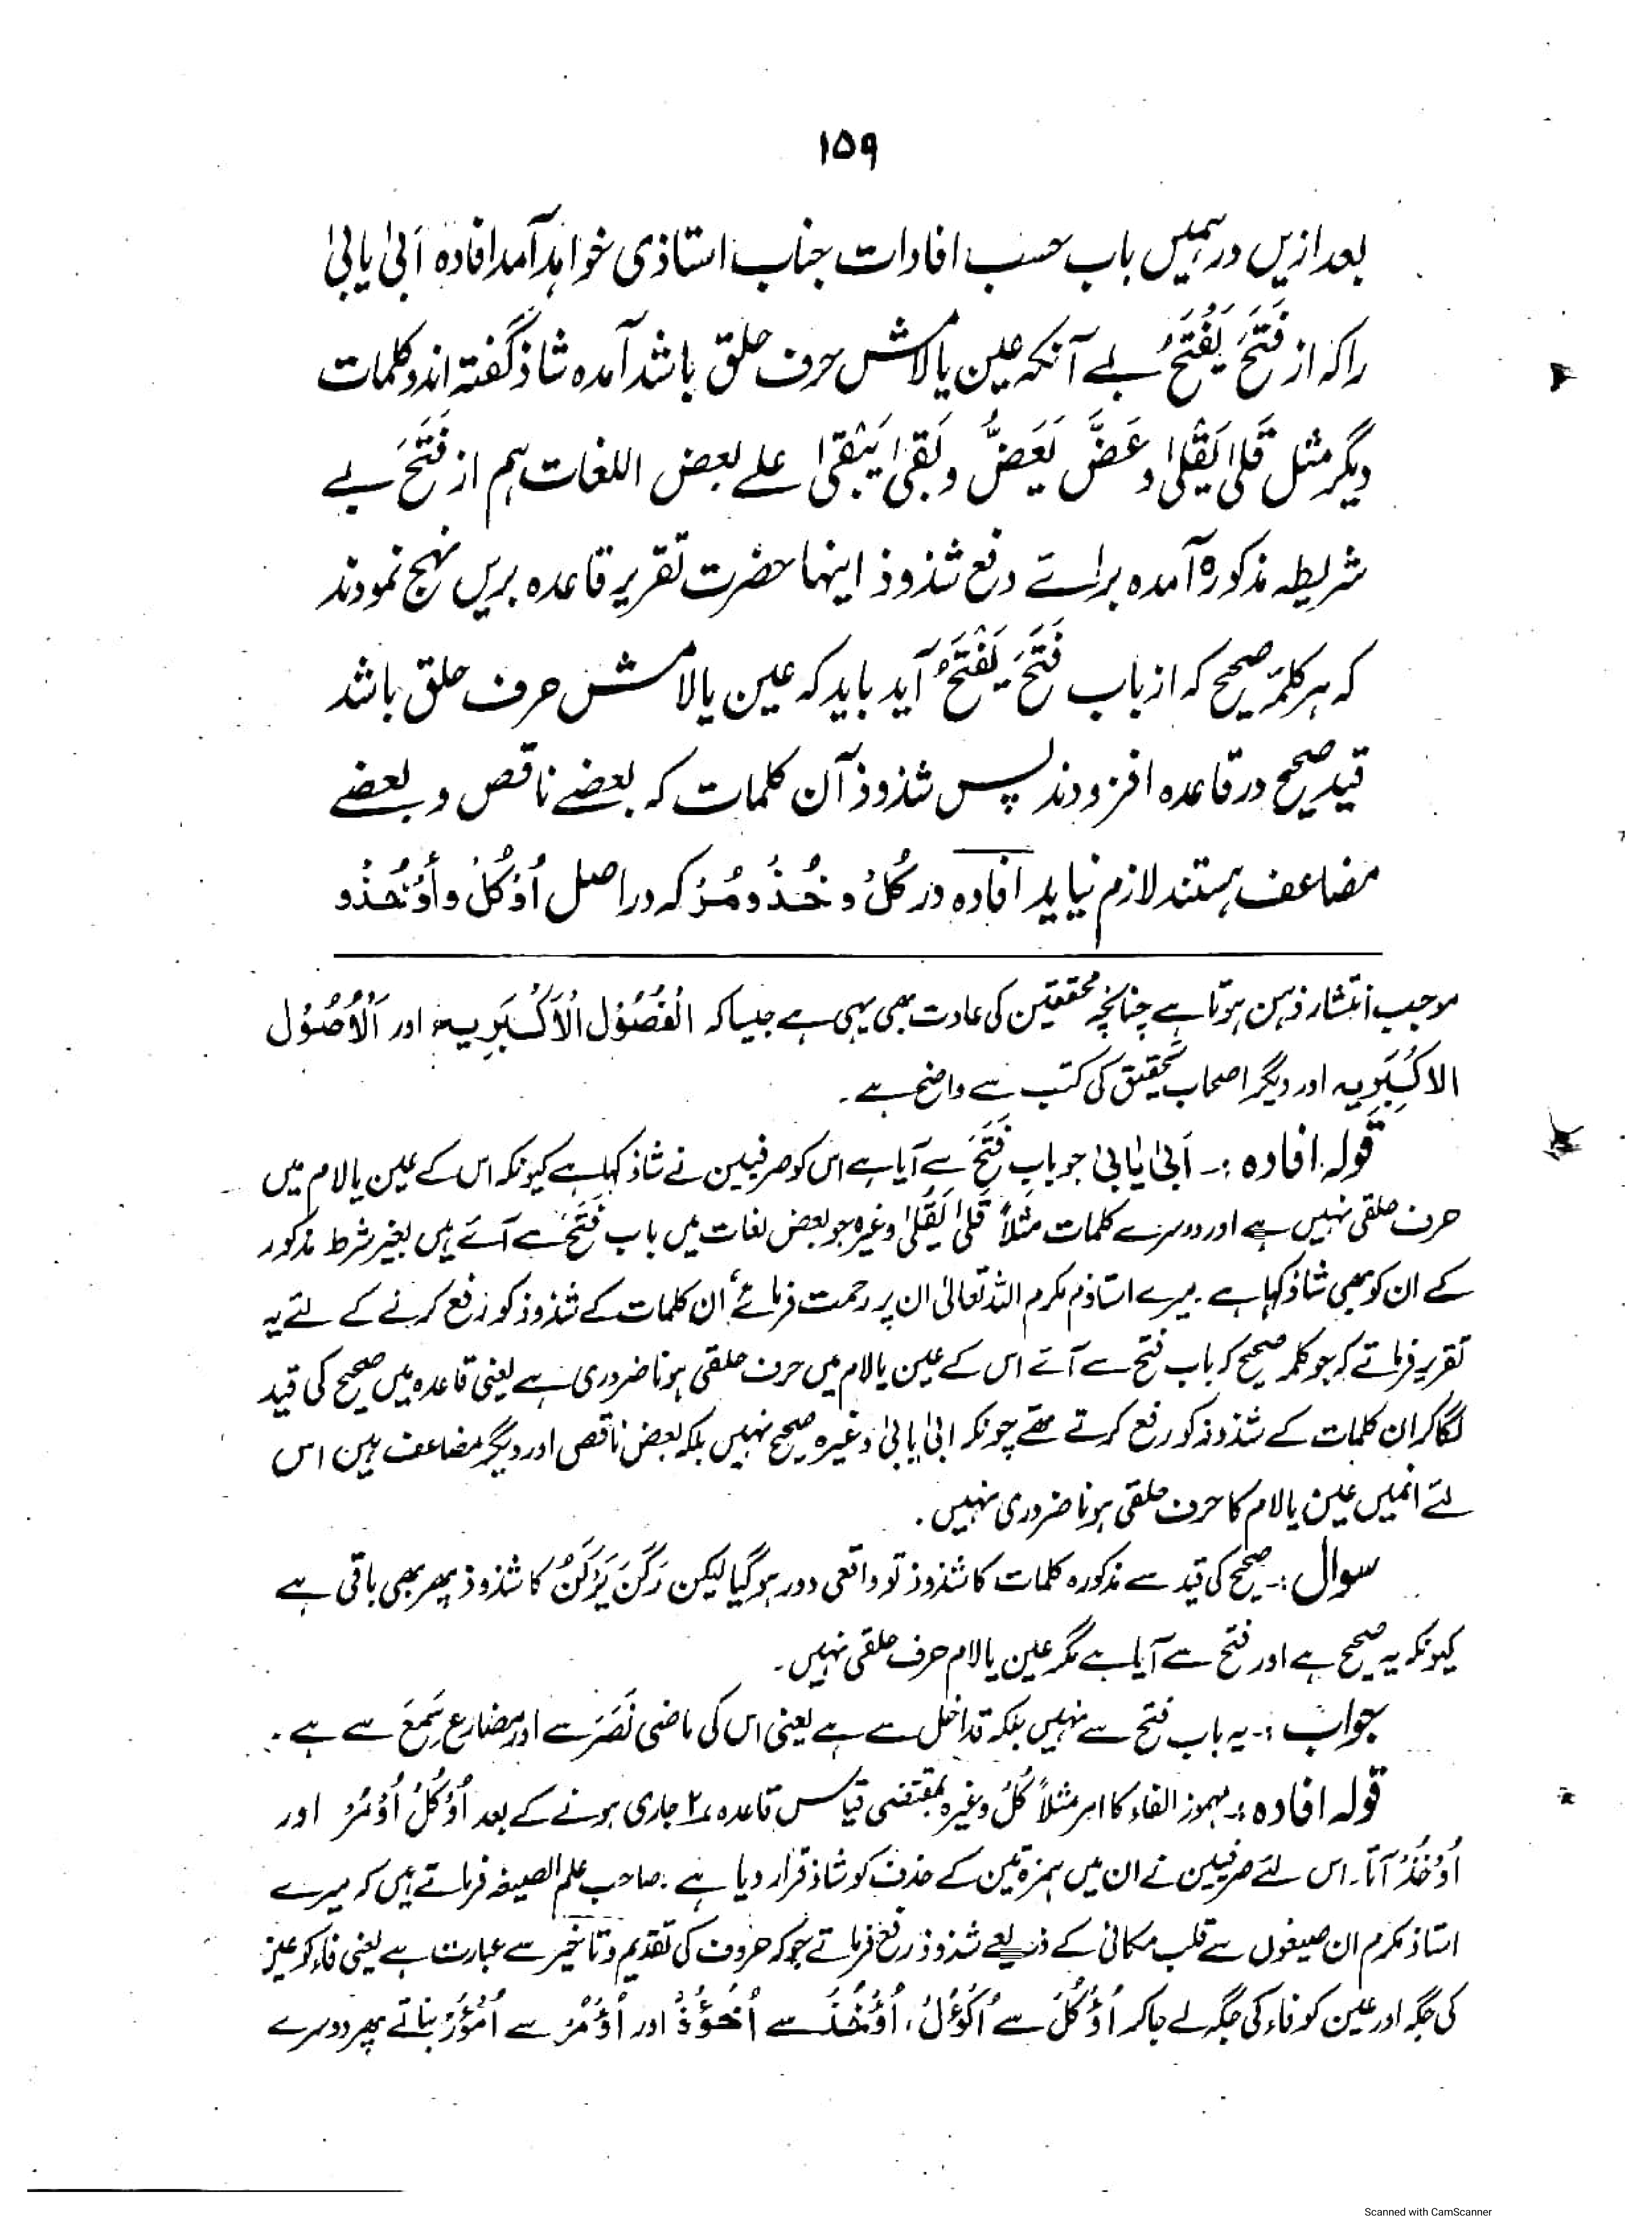 ۱۵۹
بعد ازیں در ہمیں باب حسب افادات جناب استاذی خواہد آمد افادہ اَبیٰ یابیٰ
را کہ از فَتَحَ یَفْتَحُ بے آنکہ عین یا لامش حرف حلق باشد آمدہ شاذ گفتہ اند و کلمات
دیگر مثل قَلیٰ یَقْلیٰ و عَضَّ یَعَضُّ و بَقیٰ یَبْقیٰ علے بعض اللغات ہم از فَتَحَ بے
شریطہ مذکورہ آمدہ برائے دفع شذوذ اینہا حضرت تقریر قاعدہ بریں نہج نمودند
کہ ہر کلمۂ صحیح کہ از باب فَتَحَ یَفْتَحُ آید باید کہ عین یا لامش حرف حلق باشد
قید صحیح در قاعدہ افزودند پس شذوذ آن کلمات کہ بعضے ناقص و بعضے
مضاعف ہستند لازم نیاید افادہ در کُلْ و خُذْ و مُرْ کہ در اصل اُوْکُلْ و اُوْخُذْ و
موجب انتشار ذہن ہوتا ہے چنانچہ محققین کی عادت بھی یہی ہے جیسا کہ اَلْفُصُوْل الْاَکْبَرِیہ اور اَلْاُصُوْل
الاکْبَرِیہ اور دیگر اصحاب تحقیق کی کتب سے واضح ہے۔
قولہ افادہ :۔ اَبیٰ یَابیٰ جو باب فَتَحَ سے آیا ہے اس کو صرفیین نے شاذ کہا ہے کیونکہ اس کے عین یا لام میں
حرف حلقی نہیں ہے اور دوسرے کلمات مثلاً قَلیٰ یَقْلیٰ وغیرہ جو بعض لغات میں باب فَتَحَ سے آئے ہیں بغیر شرط مذکور
کے ان کو بھی شاذ کہا ہے۔ میرے استاذم مکرم اللہ تعالیٰ ان پر رحمت فرمائے اُن کلمات کے شذوذ کو رفع کرنے کے لئے یہ
تقریر فرماتے کہ جو کلمہ صحیح کہ باب فتح سے آئے اس کے عین یا لام میں حرف حلقی ہونا ضروری ہے یعنی قاعدہ میں صحیح کی قید
لگا کر ان کلمات کے شذوذ کو رفع کرتے تھے چونکہ ابیٰ یابیٰ وغیرہ صحیح نہیں بلکہ بعض ناقص اور دیگر مضاعف ہین اس
لئے انمیں عین یا لام کا حرف حلقی ہونا ضروری نہیں۔
سوال :۔ صحیح کی قید سے مذکورہ کلمات کا شذوذ تو واقعی دور ہو گیا لیکن رَکَنَ یَرْکَنُ کا شذوذ پھر بھی باقی ہے
کیونکہ یہ صحیح ہے اور فتح سے آیا ہے مگر عین یا لام حرف حلقی نہیں۔
جواب :۔ یہ باب فتح سے نہیں بلکہ تداخل سے ہے یعنی اس کی ماضی نَصَرَ سے اور مضارع سَمِعَ سے ہے۔
قولہ افادہ :۔ مہموز الفاء کا امر مثلاً کُلْ وغیرہ بمقتضی قیاس قاعدہ ۲ جاری ہونے کے بعد اُوْکُلْ اُوْمُرْ اور
اُوْخُذْ آتا۔ اس لئے صرفیین نے ان میں ہمزہ تین کے حذف کو شاذ قرار دیا ہے۔ صاحب علم الصیغہ فرماتے ہیں کہ میرے
استاذ مکرم ان صیغوں سے قلب مکانی کے ذریعے شذوذ رفع فرماتے جو کہ حروف کی تقدیم و تاخیر سے عبارت ہے یعنی فاء کو عین
کی جگہ اور عین کو فاء کی جگہ لے جا کر اُؤْکُلْ سے اُکْؤُلْ، اُؤْخُذْ سے اُخْؤُذْ اور اُؤْمُرْ سے اُمْؤُرْ بناتے پھر دوسرے
Scanned with CamScanner